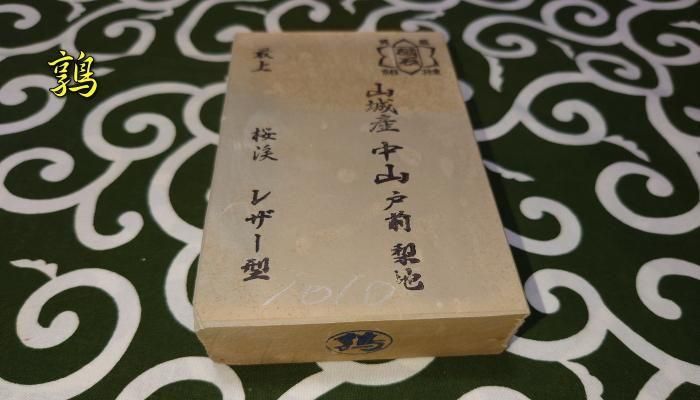 鶉
山城産 中山 戸前 梨地
最上 桜渓 レザー型
1010